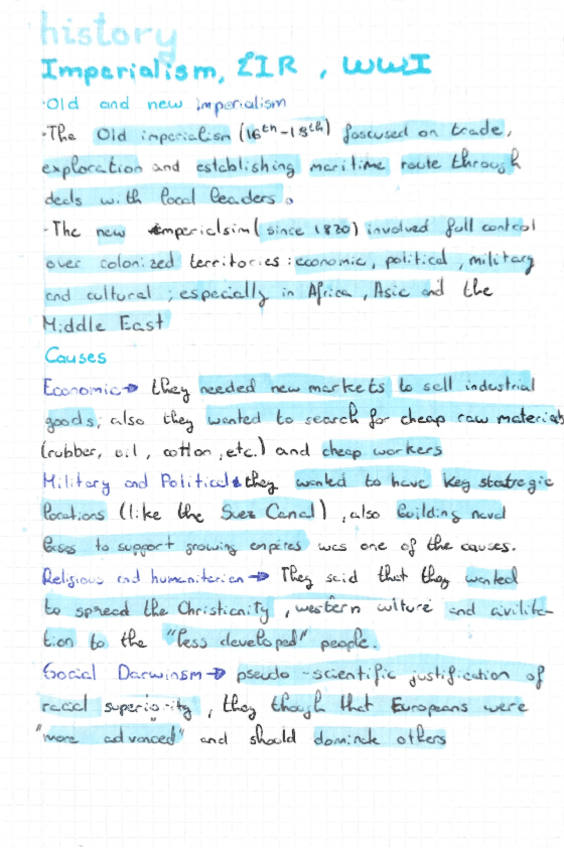 history
Imperialism, 2IR, WWI
·Old and new imperialism
·The Old imperialism (16th-18th) foscused on trade,
exploration and establishing maritime route through
deals with local leaders.
·The new imperialsim (since 1820) involved full control
over colonized territories: economic, political, military
and cultural; especially in Africa, Asia and the
Middle East
Causes
Economic→ they needed new markets to sell industrial
goods; also they wanted to search for cheap raw materials
(rubber, oil, cotton, etc.) and cheap workers
Military and Political→ they wanted to have key statregic
locations (like the Suez Canal), also building naval
bases to support growing empires was one of the causes.
Religious and humanitarian→ They said that they wanted
to spread the Christianity, western culture and civiliza-
tion to the "less developed" people.
Social Darwinsm→ pseudo-scientific justification of
racial superiority, they though that Europeans were
"more advanced" and should dominate others